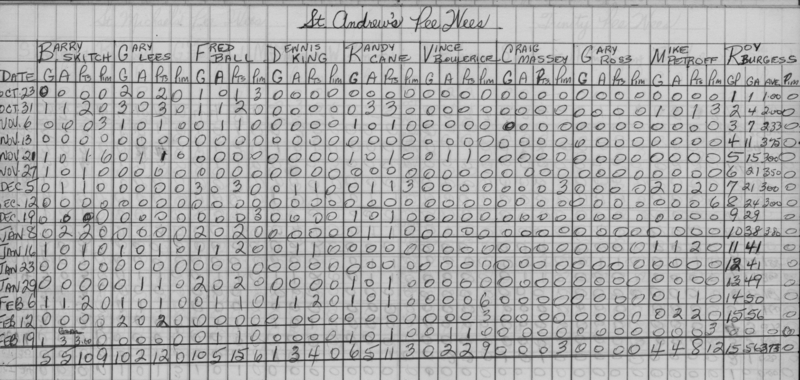 St. Andrew's Pee Wees
BARRY SKITCH GARY LEES FRED BALL DENNIS KING RANDY CANE VINCE BOULERICE CRAIG MASSEY GARY ROSS MIKE PETROFF ROY BURGESS
DATE G A Pts Pim G A Pts Pim G A Pts Pim G A Pts Pim G A Pts Pim G A Pts Pim G A Pts Pim G A Pts Pim G A Pts Pim GP GA AVE Pim
OCT. 23 0 0 0 0 2 0 2 0 1 0 1 3 0 0 0 0 0 0 0 0 0 0 0 0 0 0 0 0 0 0 0 0 0 0 0 0 1 1 1.00 0
OCT. 31 1 1 2 0 3 0 3 0 1 1 2 0 0 0 0 0 0 3 3 0 0 0 0 0 0 0 0 0 0 0 0 0 1 0 1 3 2 4 2.00 0
NOV. 6 0 0 0 3 1 0 1 0 0 1 1 0 0 0 0 0 1 0 1 0 0 0 0 0 0 0 0 0 0 0 0 0 0 0 0 0 3 7 2.33 0
NOV. 13 0 0 0 0 0 0 0 0 0 0 0 0 0 0 0 0 0 0 0 0 0 0 0 0 0 0 0 0 0 0 0 0 0 0 0 0 4 11 3.75 0
NOV. 21 1 0 1 6 0 1 1 0 0 0 0 0 0 0 0 0 1 0 1 0 0 1 1 0 0 0 0 0 0 0 0 0 0 0 0 0 5 15 300 0
NOV. 27 1 0 1 0 0 0 0 0 0 0 0 0 0 0 0 0 0 0 0 0 0 0 0 0 0 0 0 0 0 0 0 0 0 0 0 0 6 21 350 0
DEC 5 0 1 1 0 0 0 0 0 3 0 3 0 0 1 1 0 0 1 1 3 0 0 0 0 0 0 0 3 0 0 0 0 2 0 2 0 7 21 300 0
DEC. 12 0 0 0 0 0 0 0 0 0 0 0 0 0 0 0 0 0 0 0 0 0 0 0 0 0 0 0 0 0 0 0 0 0 0 0 6 8 24 300 0
DEC. 19 0 0 0 0 0 0 0 0 0 0 0 3 0 0 0 0 1 0 1 0 0 0 0 0 0 0 0 0 0 0 0 0 0 0 0 0 9 29 0
JAN 8 0 2 2 0 0 0 0 0 2 0 2 0 0 0 0 0 0 1 1 0 0 0 0 0 0 0 0 0 0 0 0 0 0 0 0 0 10 38 380 0
JAN 16 1 0 1 0 1 0 1 0 1 1 2 0 0 1 1 0 0 0 0 0 0 0 0 0 0 0 0 0 0 0 0 0 1 1 2 0 11 41 0
JAN 23 0 0 0 0 0 0 0 0 0 0 0 0 0 0 0 0 0 0 0 0 0 0 0 0 0 0 0 0 0 0 0 0 0 0 0 0 12 41 0
JAN 29 0 0 0 0 0 1 1 0 2 0 2 0 0 0 0 0 1 0 1 0 0 0 0 0 0 0 0 0 0 0 0 0 0 0 0 0 13 49 0
FEB 6 1 1 2 0 1 0 1 0 0 1 1 0 1 1 2 0 1 0 1 0 0 0 0 6 0 0 0 0 0 0 0 0 0 1 1 0 14 50 0
FEB 12 0 0 0 0 2 0 2 0 0 0 0 0 0 0 0 0 0 0 0 0 0 0 0 3 0 0 0 0 0 0 0 0 0 2 2 0 15 56 0
FEB 19 1 3 3.00 0 0 0 0 0 0 1 1 0 0 0 0 0 1 0 1 0 0 1 1 0 0 0 0 0 0 0 0 0 0 0 0 3
5 5 10 9 10 2 12 0 10 5 15 6 1 3 4 0 6 5 11 3 0 2 2 9 0 0 0 3 0 0 0 0 4 4 8 12 15 56 373 0